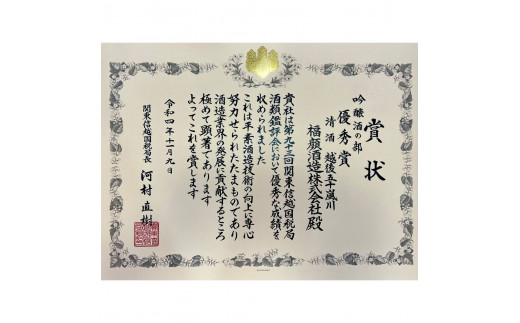 賞状
吟醸酒の部
優秀賞
清酒 越後五十嵐川
福顔酒造株式会社殿
貴社は第九十三回関東信越国税局
酒類鑑評会において優秀な成績を
収められました
これは平素酒造技術の向上に専心
努力せられたたまものであり
酒造業界の発展に貢献するところ
極めて顕著であります
よってこれを賞します
令和四年十一月九日
関東信越国税局長 河村直樹